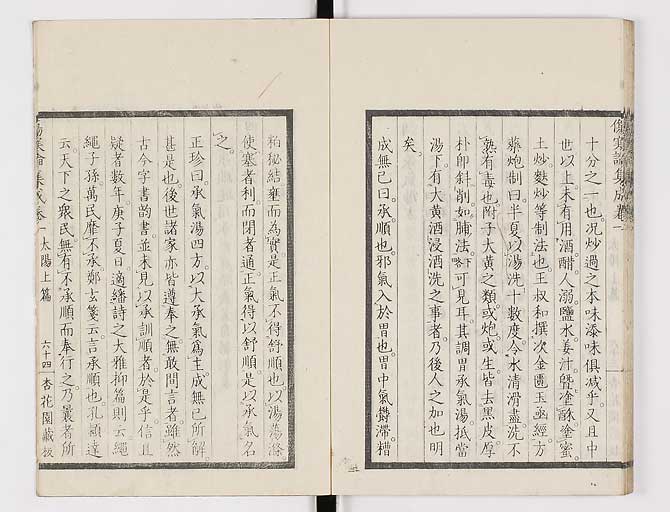 傷寒論集成卷一
十分之一也况炒過之本味漆味俱减乎又且中
世以上未有用酒醋人溺鹽水姜汁蜃塗酥塗蜜
土炒麩炒等制法也王叔和撰次金匱玉函經方
藥炮制曰半夏以湯洗十數度令水清滑盡洗不
熟有毒也附子大黄之類或炮或生皆去黒皮厚
朴即斜削如脯法略可見耳其調胃承氣湯抵當
湯下有大黄酒浸酒洗之事者乃後人之加也明
矣
成無已曰承順也邪氣入於胃也胃中氣鬱滯糟
粕秘結壅而為實是正氣不得舒順也以湯蕩滌
使塞者利而閉者通正氣得以舒順是以承氣名
之
正珍曰承氣湯四方以大承氣為主成無已所解
甚是也後世諸家亦皆遵奉之無敢問言者雖然
古今字書韵書並未見以承訓順者於是乎信且
疑者數年庚子夏日適繙詩之大雅抑篇則云繩
繩子孫萬民靡不承鄭玄箋云言承順也孔穎達
云天下之衆民無有不承順而奉行之乃曩者所
傷寒論集成卷一 太陽上篇 六十四 杏花園藏板